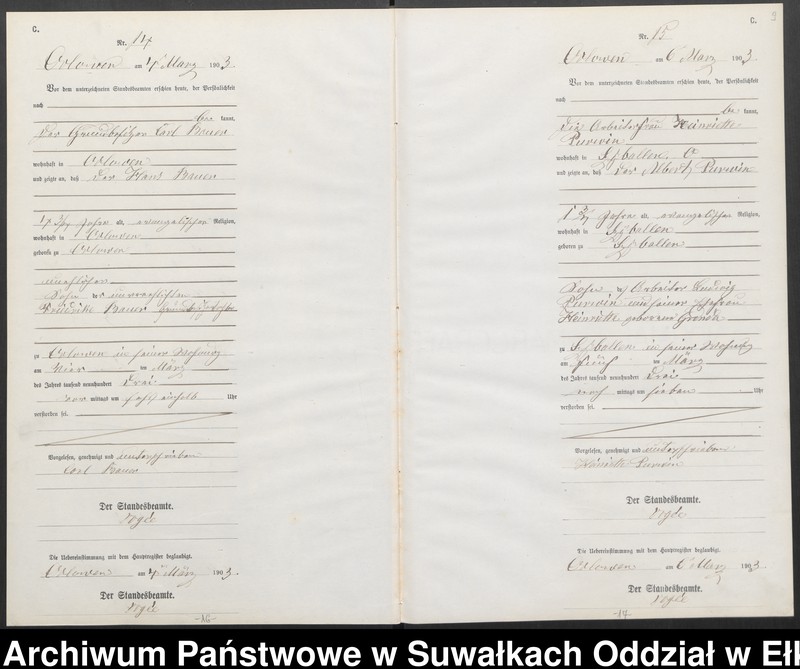 C.
Nr. 14
Orlowen am 4 März 1903.
Vor dem unterzeichneten Standesbeamten erschien heute, der Persönlichkeit
nach
be kannt,
der Grundbesitzer Carl Bauer
wohnhaft in Orlowen
und zeigte an, daß der Hans Bauer
4 3/4 Jahre alt, evangelischer Religion,
wohnhaft in Orlowen
geboren zu Orlowen
unehelicher
Sohn der unverehelichten
Friedrike Bauer
zu Orlowen in seiner Wohnung
am vier im März
des Jahres tausend neunhundert drei
vor mittags um Uhr
verstorben sei.
Vorgelesen, genehmigt und unterschrieben
Carl Bauer
Der Standesbeamte.
Die Uebereinstimmung mit dem Hauptregister beglaubigt.
Orlowen am 4 März 1903.
Der Standesbeamte.
-16-
C. 9
Nr. 15
Orlowen am 6 März 1903.
Vor dem unterzeichneten Standesbeamten erschien heute, der Persönlichkeit
nach
be kannt,
die Arbeiterfrau Heinriette
Purwin
wohnhaft in
und zeigte an, daß der Albert Purwin
Jahre alt, evangelischer Religion,
wohnhaft in
geboren zu
Sohn des Arbeiter Ludwig
Purwin und seiner Ehefrau
Heinriette geborenen
zu in seiner Wohnung
am fünf im März
des Jahres tausend neunhundert drei
nach mittags um sieben Uhr
verstorben sei.
Vorgelesen, genehmigt und unterschrieben
Heinriette Purwin
Der Standesbeamte.
Die Uebereinstimmung mit dem Hauptregister beglaubigt.
Orlowen am 6 März 1903.
Der Standesbeamte.
-17-
Archiwum Państwowe w Suwałkach Oddział w Eł